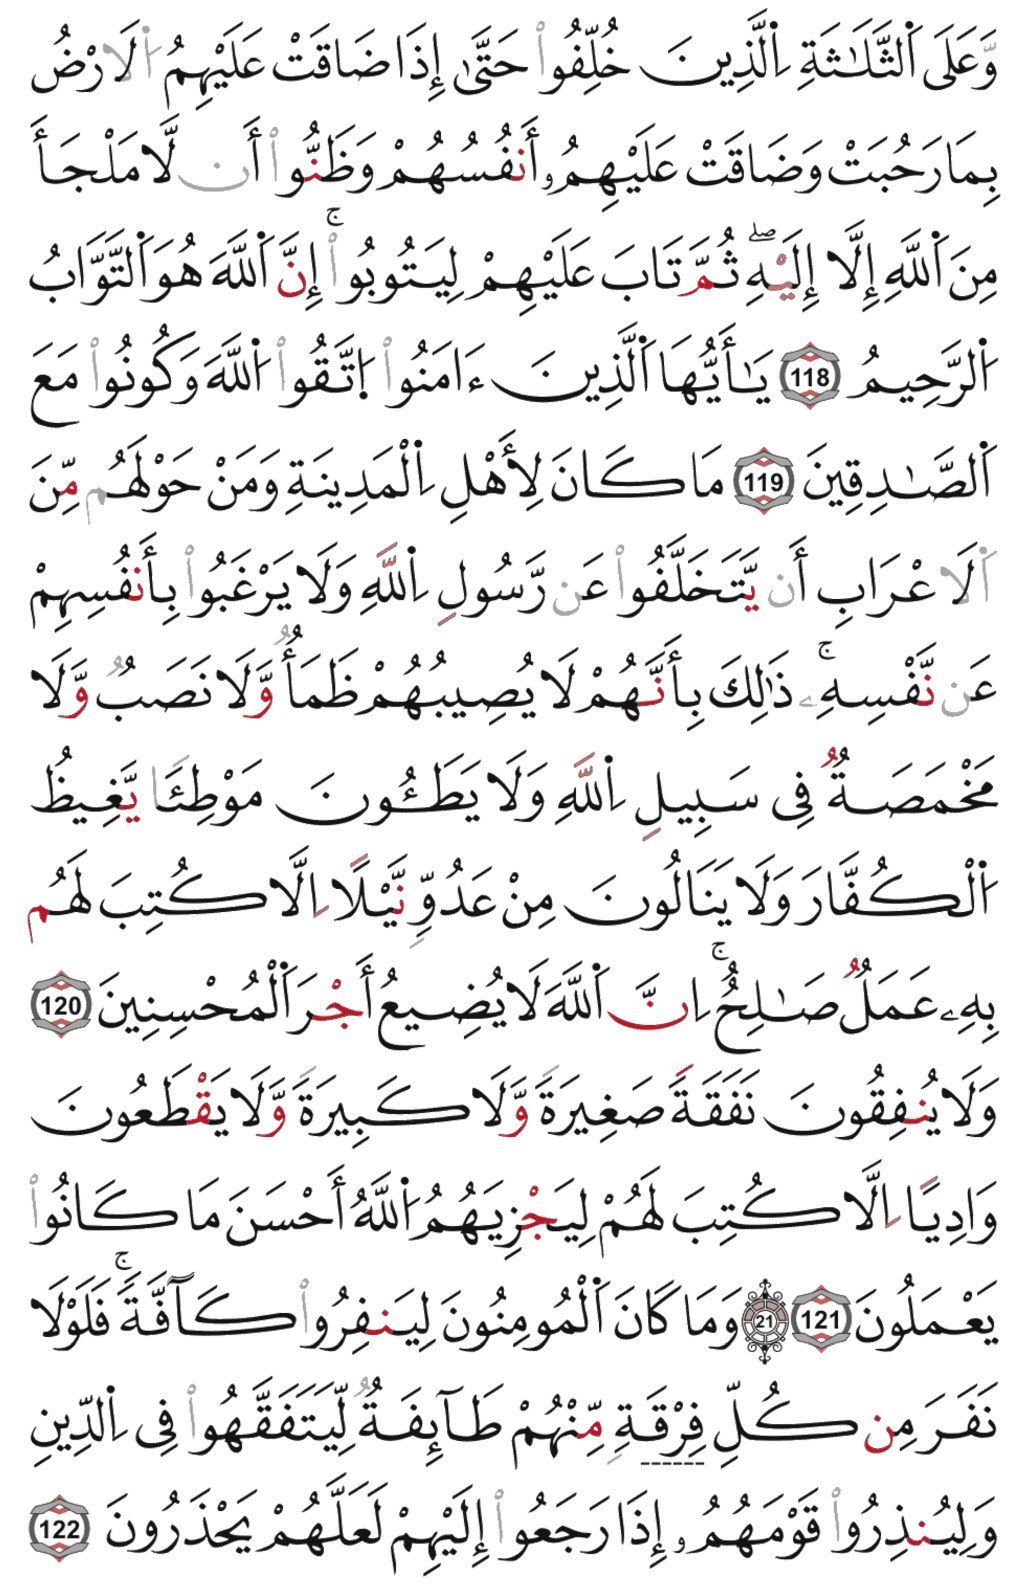 وَعَلَى اَ۬لثَّلَٰثَةِ اِ۬لذِينَ خُلِّفُواْ حَتَّىٰ إِذَا ضَاقَتْ عَلَيْهِمُ اُ۬لَارْضُ
بِمَا رَحُبَتْ وَضَاقَتْ عَلَيْهِمُۥ أَنفُسُهُمْ وَظَنُّواْ أَن لَّا مَلْجَأَ
مِنَ اَ۬للَّهِ إِلَّا إِلَيْهِۖ ثُمَّ تَابَ عَلَيْهِمْ لِيَتُوبُواْۚ إِنَّ اَ۬للَّهَ هُوَ اَ۬لتَّوَّابُ
اُ۬لرَّحِيمُ 118 يَٰأَيُّهَا اَ۬لذِينَ ءَامَنُواْ اُ۪تَّقُواْ اُ۬للَّهَ وَكُونُواْ مَعَ
اَ۬لصَّٰدِقِينَ 119 مَا كَانَ لِأَهْلِ اِ۬لْمَدِينَةِ وَمَنْ حَوْلَهُم مِّنَ
اَ۬لَاعْرَابِ أَن يَّتَخَلَّفُواْ عَن رَّسُولِ اِ۬للَّهِ وَلَا يَرْغَبُواْ بِأَنفُسِهِمْ
عَن نَّفْسِهِۦۚ ذَٰلِكَ بِأَنَّهُمْ لَا يُصِيبُهُمْ ظَمَأٌ وَّلَا نَصَبٌ وَّلَا
مَخْمَصَةٌ فِي سَبِيلِ اِ۬للَّهِ وَلَا يَطَـُٔونَ مَوْطِئًا يَّغِيظُ
اُ۬لْكُفَّارَ وَلَا يَنَالُونَ مِنْ عَدُوٍّ نَّيْلًا اِلَّا كُتِبَ لَهُم
بِهِۦ عَمَلٌ صَٰلِحٌۚ اِنَّ اَ۬للَّهَ لَا يُضِيعُ أَجْرَ اَ۬لْمُحْسِنِينَ 120
وَلَا يُنفِقُونَ نَفَقَةً صَغِيرَةً وَّلَا كَبِيرَةً وَّلَا يَقْطَعُونَ
وَادِيًا اِلَّا كُتِبَ لَهُمْ لِيَجْزِيَهُمُ اُ۬للَّهُ أَحْسَنَ مَا كَانُواْ
يَعْمَلُونَ 121 21 وَمَا كَانَ اَ۬لْمُومِنُونَ لِيَنفِرُواْ كَآفَّةًۚ فَلَوْلَا
نَفَرَ مِن كُلِّ فِرْقَةٍ مِّنْهُمْ طَآئِفَةٌ لِّيَتَفَقَّهُواْ فِي اِ۬لدِّينِ
وَلِيُنذِرُواْ قَوْمَهُمُۥ إِذَا رَجَعُواْ إِلَيْهِمْ لَعَلَّهُمْ يَحْذَرُونَ 122